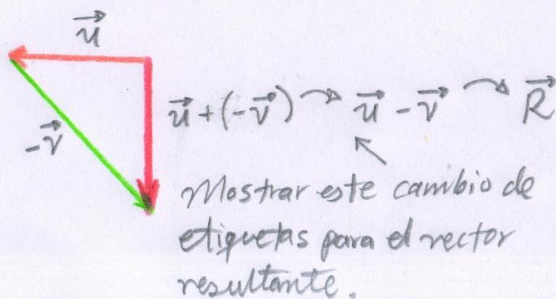 u⃗
-v⃗
u⃗ + (-v⃗) ↷ u⃗ - v⃗ ↷ R⃗
Mostrar este cambio de
etiquetas para el vector
resultante.